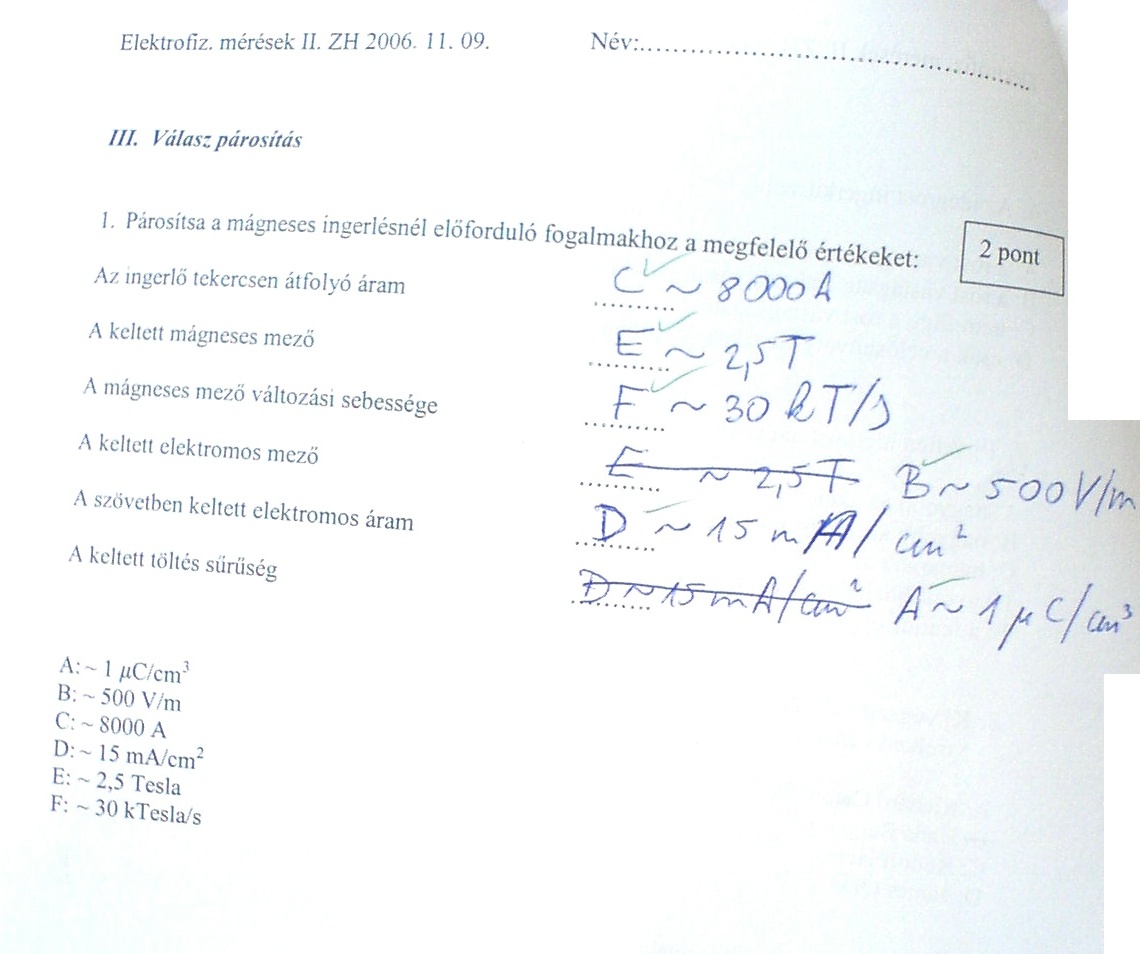 Elektrofiz. mérések II. ZH 2006. 11. 09. Név:..........
III. Válasz párosítás
1. Párosítsa a mágneses ingerlésnél előforduló fogalmakhoz a megfelelő értékeket: 2 pont
Az ingerlő tekercsen átfolyó áram C ~ 8000 A
A keltett mágneses mező E ~ 2,5T
A mágneses mező változási sebessége F ~ 30 kT/s
A keltett elektromos mező E ~ 2,5T B ~ 500 V/m
A szövetben keltett elektromos áram D ~ 15 mA/cm²
A keltett töltés sűrűség D ~ 15 mA/cm² A ~ 1 μC/cm³
A: ~ 1 μC/cm³
B: ~ 500 V/m
C: ~ 8000 A
D: ~ 15 mA/cm²
E: ~ 2,5 Tesla
F: ~ 30 kTesla/s